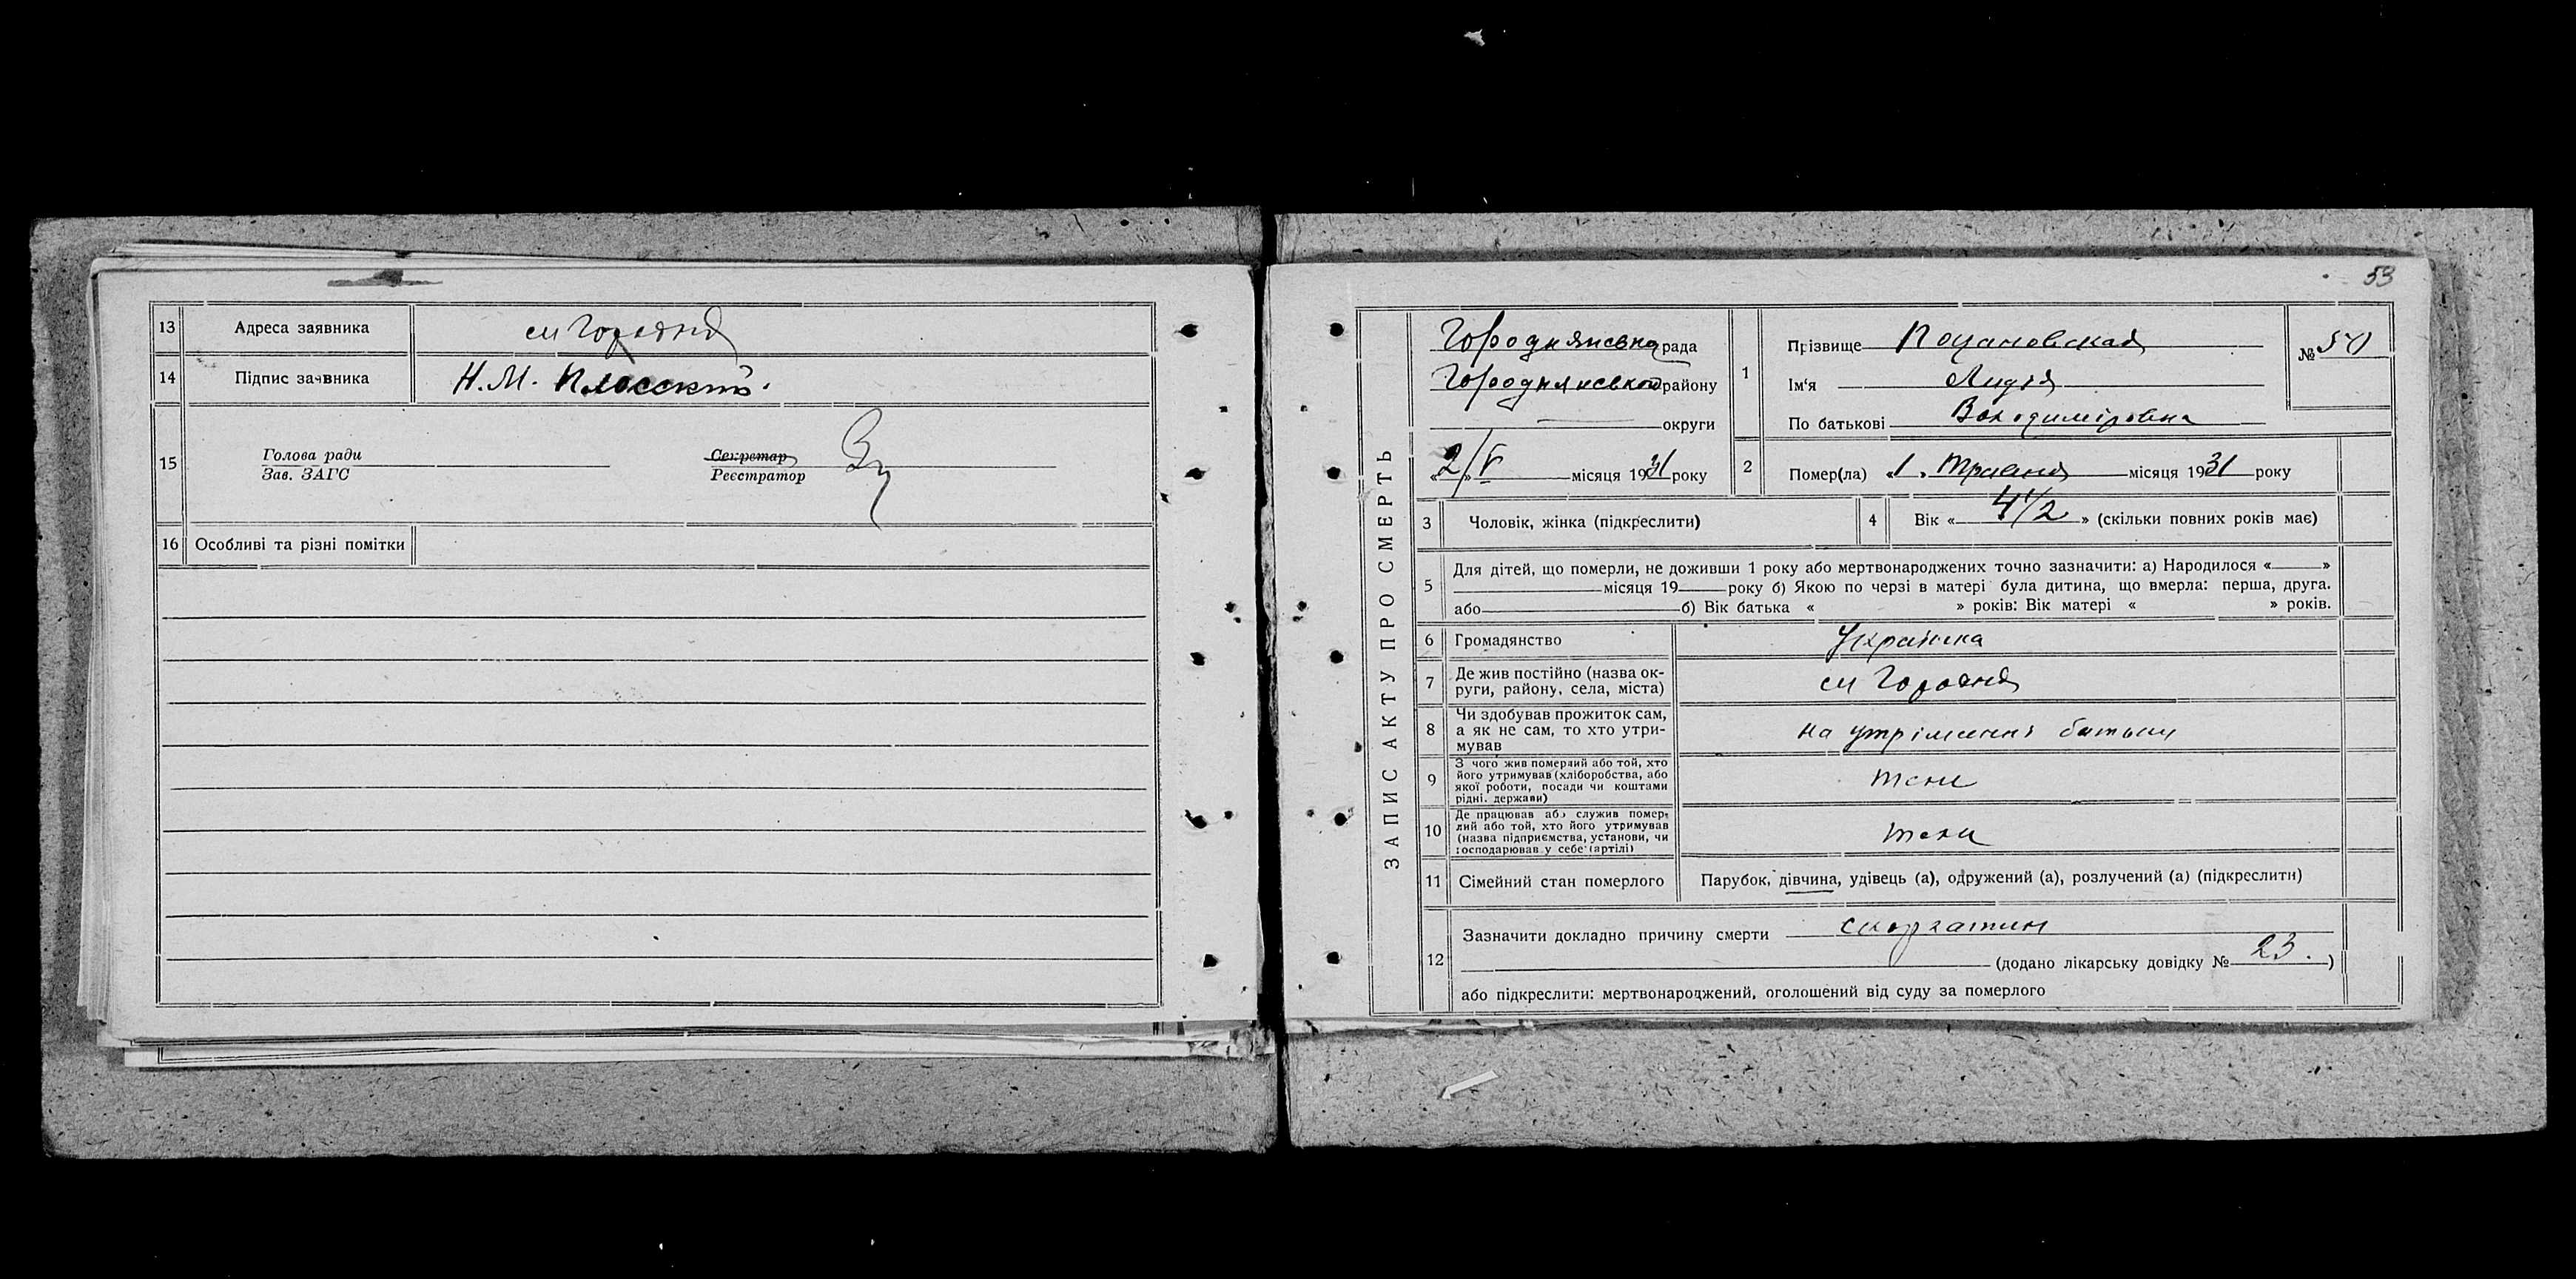 13 Адреса заявника см Городня
14 Підпис заявника Н.М. Плосский.
15 Голова ради
Зав. ЗАГС
Секретар
Реєстратор
16 Особливі та різні помітки
53
ЗАПИС АКТУ ПРО СМЕРТЬ
Городнянська рада
Городнянського району
округи
«2/V місяця 1931 року
1 Прізвище
Ім'я Лидія
По батькові Володимировна
№ 50
2 Помер(ла) «1. Травня місяця 1931 року
3 Чоловік, жінка (підкреслити)
4 Вік « 4 1/2 » (скільки повних років має)
5 Для дітей, що померли, не доживши 1 року або мертвонароджених точно зазначити: а) Народилося « »
місяця 19 року б) Якою по черзі в матері була дитина, що вмерла: перша, друга.
або б) Вік батька « » років: Вік матері « » років.
6 Громадянство Українка
7 Де жив постійно (назва ок-
руги, району, села, міста) см Городня
8 Чи здобував прожиток сам,
а як не сам, то хто утри-
мував на утріманні батьки
9 З чого жив померлий або той, хто
його утримував (хліборобства, або
якої роботи, посади чи коштами
рідні. держави)
10 Де працював або служив помер-
лий або той, хто його утримував
(назва підприємства, установи, чи
господарював у себе (артілі)
11 Сімейний стан померлого Парубок, дівчина, удівець (а), одружений (а), розлучений (а) (підкреслити)
12 Зазначити докладно причину смерти
(додано лікарську довідку № 23.)
або підкреслити: мертвонароджений, оголошений від суду за померлого